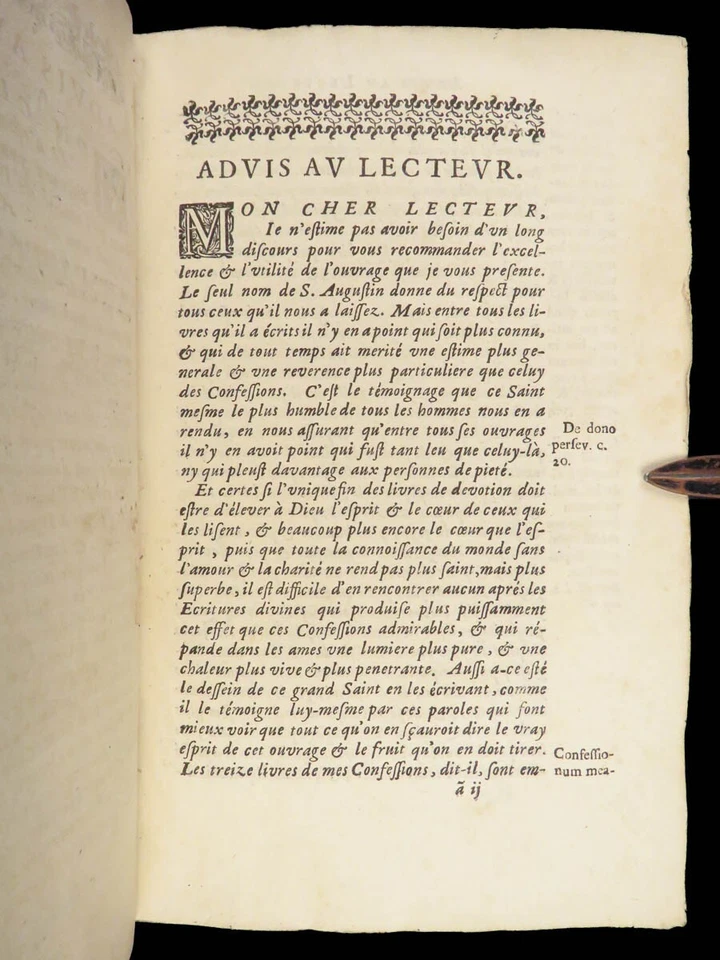 ADVIS AV LECTEVR.
MON CHER LECTEVR,
Ie n'eſtime pas avoir beſoin d'vn long
diſcours pour vous recommander l'excel-
lence & l'vtilité de l'ouvrage que je vous preſente.
Le ſeul nom de S. Auguſtin donne du reſpect pour
tous ceux qu'il nous a laiſſez. Mais entre tous les li-
vres qu'il a écrits il n'y en a point qui ſoit plus connu,
& qui de tout temps ait merité vne eſtime plus ge-
nerale & vne reverence plus particuliere que celuy
des Confeſſions. C'eſt le témoignage que ce Saint
meſme le plus humble de tous les hommes nous en a
rendu, en nous aſſurant qu'entre tous ſes ouvrages
il n'y en avoit point qui fuſt tant leu que celuy-là,
ny qui pleuſt davantage aux perſonnes de pieté.
De dono
perſev. c.
20.
Et certes ſi l'vnique fin des livres de devotion doit
eſtre d'élever à Dieu l'eſprit & le cœur de ceux qui
les liſent, & beaucoup plus encore le cœur que l'eſ-
prit, puis que toute la connoiſſance du monde ſans
l'amour & la charité ne rend pas plus ſaint, mais plus
ſuperbe, il eſt difficile d'en rencontrer aucun aprés les
Ecritures divines qui produiſe plus puiſſamment
cet effet que ces Confeſſions admirables, & qui ré-
pande dans les ames vne lumiere plus pure, & vne
chaleur plus vive & plus penetrante. Auſſi a-ce eſté
le deſſein de ce grand Saint en les écrivant, comme
il le témoigne luy-meſme par ces paroles qui font
mieux voir que tout ce qu'on en ſçauroit dire le vray
eſprit de cet ouvrage & le fruit qu'on en doit tirer.
Les treize livres de mes Confeſſions, dit-il, ſont em-
Confeſſio-
num mea-
ã ij